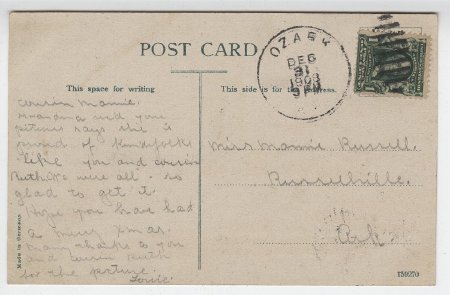 POST CARD
This space for writing
This side is for the address.
OZARK
DEC
31
1908
Cousin Mamie.
mamma and your
picture says she is
proud of Kinsfolks
like you and cousin
Ruth. We were all so
glad to get it.
Hope you have had
a merry Xmas.
many thanks to you
and cousin Ruth
for the picture.
Miss Mamie Russell.
Russellville.
Ark
Made in Germany
159270